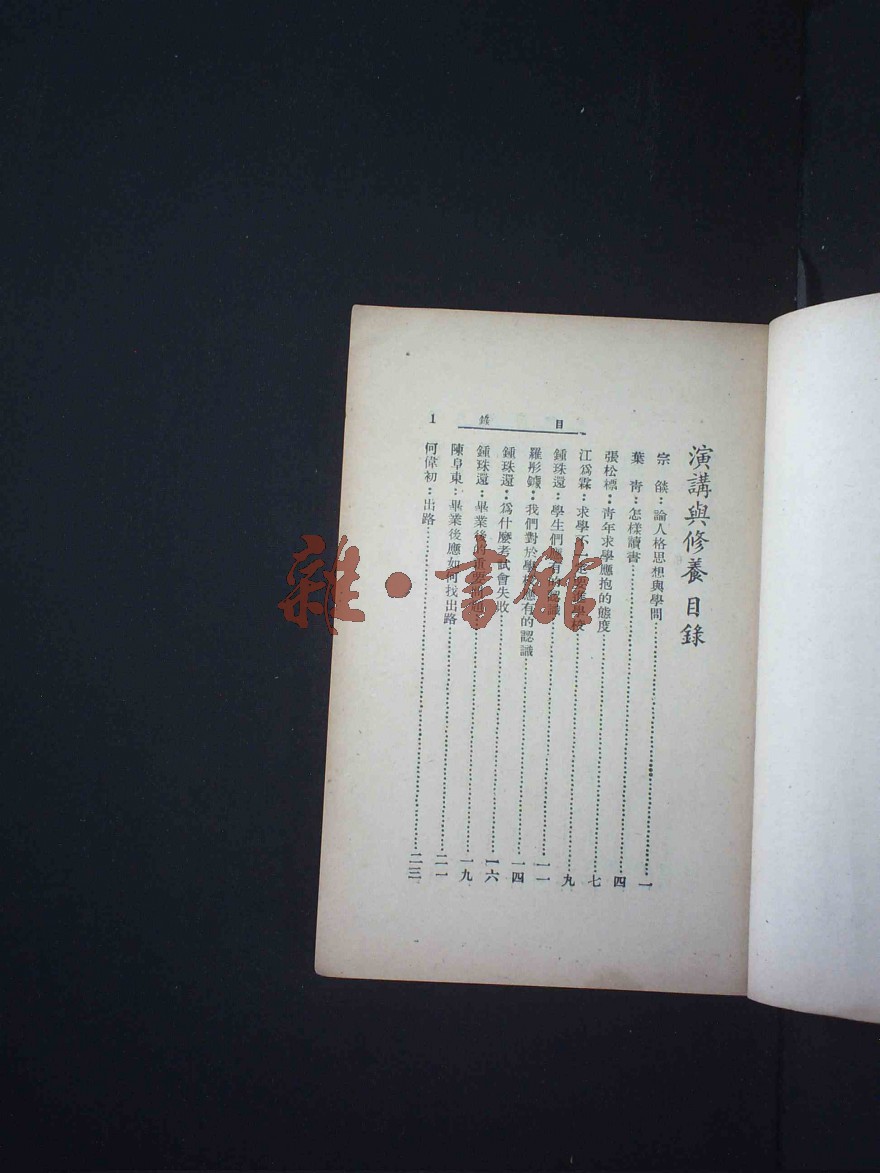 演講與修養目錄
宗　燄：論人格思想與學問……一
葉　青：怎樣讀書……四
張松標：青年求學應抱的態度……七
江爲霖：求學不一定要進學校……九
鍾珠還：學生們應有的認識……一一
羅彤：我們對於學校應有的認識……一四
鍾珠還：爲什麼考試會失敗……一六
鍾珠還：畢業後的重要……一九
陳阜東：畢業後應如何找出路……二一
何偉初：出路……二三
目錄
1
雜·書館